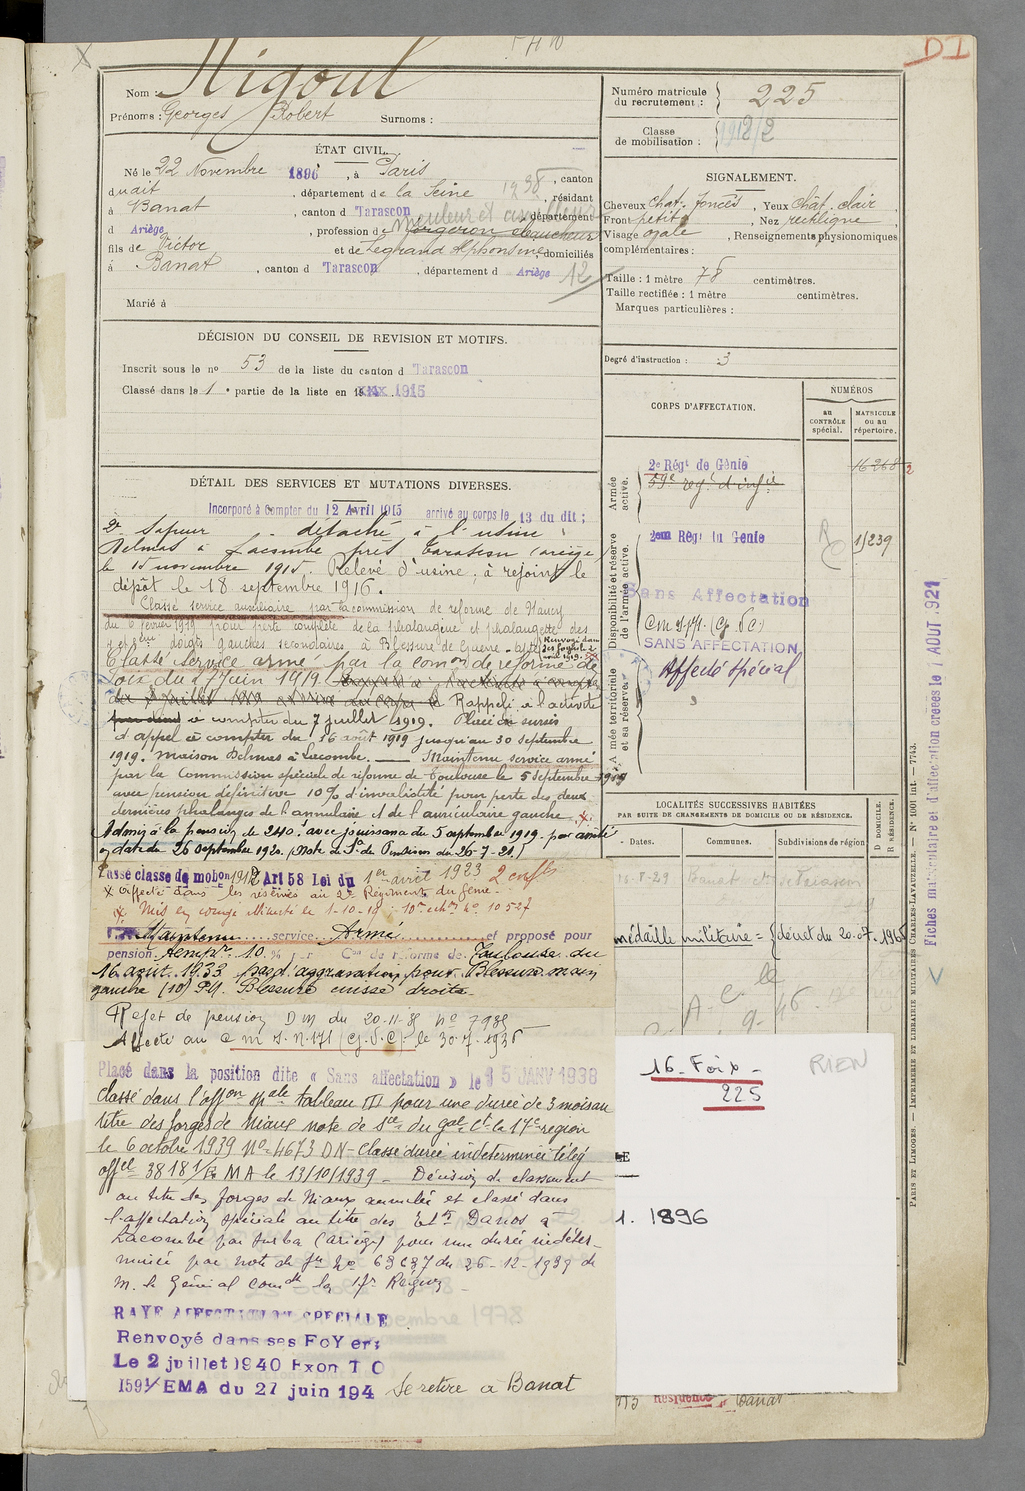 D I
Nom : Nigoul
Prénoms : Georges Robert Surnoms :
Numéro matricule du recrutement : 225
Classe de mobilisation : 1912/2
ÉTAT CIVIL.
Né le 22 Novembre 1896, à Paris, canton
dudit, département de la Seine, résidant
à Banat, canton d Tarascon, département
d Ariège, profession de Mouleur et
fils de Victor et de Legrand Alphonsine, domiciliés
à Banat, canton d Tarascon, département d Ariège
12
Marié à
SIGNALEMENT.
Cheveux chat. foncés, Yeux chat. clair
Front petit, Nez rectiligne
Visage ovale, Renseignements physionomiques
complémentaires :
Taille : 1 mètre 78 centimètres.
Taille rectifiée : 1 mètre centimètres.
Marques particulières :
Degré d'instruction : 3
DÉCISION DU CONSEIL DE REVISION ET MOTIFS.
Inscrit sous le no 53 de la liste du canton d Tarascon
Classé dans la 1e partie de la liste en 1915
CORPS D'AFFECTATION.
NUMÉROS
au CONTRÔLE spécial.
MATRICULE ou au répertoire.
Armée active.
2e Régt de Génie
16268
59e regt d'infie
Disponibilité et réserve de l'armée active.
2eme Régt du Genie
1/239
Sans Affectation
SANS AFFECTATION
Armée territoriale et sa réserve.
Affecté spécial
DÉTAIL DES SERVICES ET MUTATIONS DIVERSES.
Incorporé à compter du 12 Avril 1915 arrivé au corps le 13 du dit ;
2e Sapeur détaché à l'usine
Delmas à Lacombe près Tarascon (Ariège)
le 15 novembre 1915. Relevé d'usine, à rejoint le
dépôt le 18 septembre 1916.
Classé service auxiliaire par la commission de réforme de Nancy
du 6 février 1919 pour perte complète de la phalangine et phalangette des
4e et 5eme doigts gauches secondaires à Blessure de Guerre
Renvoyé dans ses foyers le 2 avril 1919.
Classé Service armé par la comon de réforme de
Foix du 17 juin 1919. Rappelé à l'activité
à compter du 7 juillet 1919. Placé en sursis
d'appel à compter du 16 août 1919 jusqu'au 30 septembre
1919. Maison Delmas à Lacombe. Maintenu service armé
par la Commission spéciale de réforme de Toulouse le 5 septembre 1919
avec pension définitive 10 % d'invalidité pour perte des deux
dernières phalanges de l'annulaire et de l'auriculaire gauche.
Admis à la pension de 240f. avec jouissance du 5 septembre 1919. par arrêté
en date du 26 septembre 1920. (Note de Pensions du 26-7-21.)
Passé classe de mobon 1912 Art 58 Loi du 1er avril 1923 2 enfts
Affecté dans les réserves au 2e Régiment du Génie.
Maintenu service Armé et proposé pour
pension 10 % par Con de réforme de Toulouse du
16 août 1933 pas d'aggravation pour Blessure main
gauche (10) P.D. Blessure cuisse droite
Rejet de pension D M du 20-11-35 no 7935
Affecté au C m I. N. 171 (Cj. S.C.) le 30-7-1936
Placé dans la position dite « Sans affectation » le 15 JANV 1938
Classé dans l'affon spale tableau III pour une durée de 3 mois au
titre des forges de Niaux note de Sce du gal Ct la 17e région
le 6 octobre 1939 No 4673 DN - Classé durée indéterminée télég
offel 3818 1/EMA le 13/10/1939 - Décision de classement
au titre des forges de Niaux annulée et classé dans
l'affectation spéciale au titre des Ets Danos à
Lacombe par Surba (Ariège) pour une durée indéter-
minée par note de Sce No 63637 du 26-12-1939 de
M. le Général Comdt la 17e Région
RAYE AFFECTATION SPECIALE
Renvoyé dans ses FoYers
Le 2 juillet 1940 Exon T O
1591/EMA du 27 juin 194
Se retire à Banat
LOCALITÉS SUCCESSIVES HABITÉES
PAR SUITE DE CHANGEMENTS DE DOMICILE OU DE RÉSIDENCE.
Dates. Communes. Subdivisions de région
D DOMICILE. R RÉSIDENCE.
Banat
médaille militaire = décret du 20.07.1965
16 - Foix -
225
RIEN
1. 1896
Résidence Banat
Fiches matriculaire et d'affectation créées le 1 AOUT 1921
PARIS ET LIMOGES. — IMPRIMERIE ET LIBRAIRIE MILITAIRES CHARLES-LAVAUZELLE. — No 1001 int. — 7743.